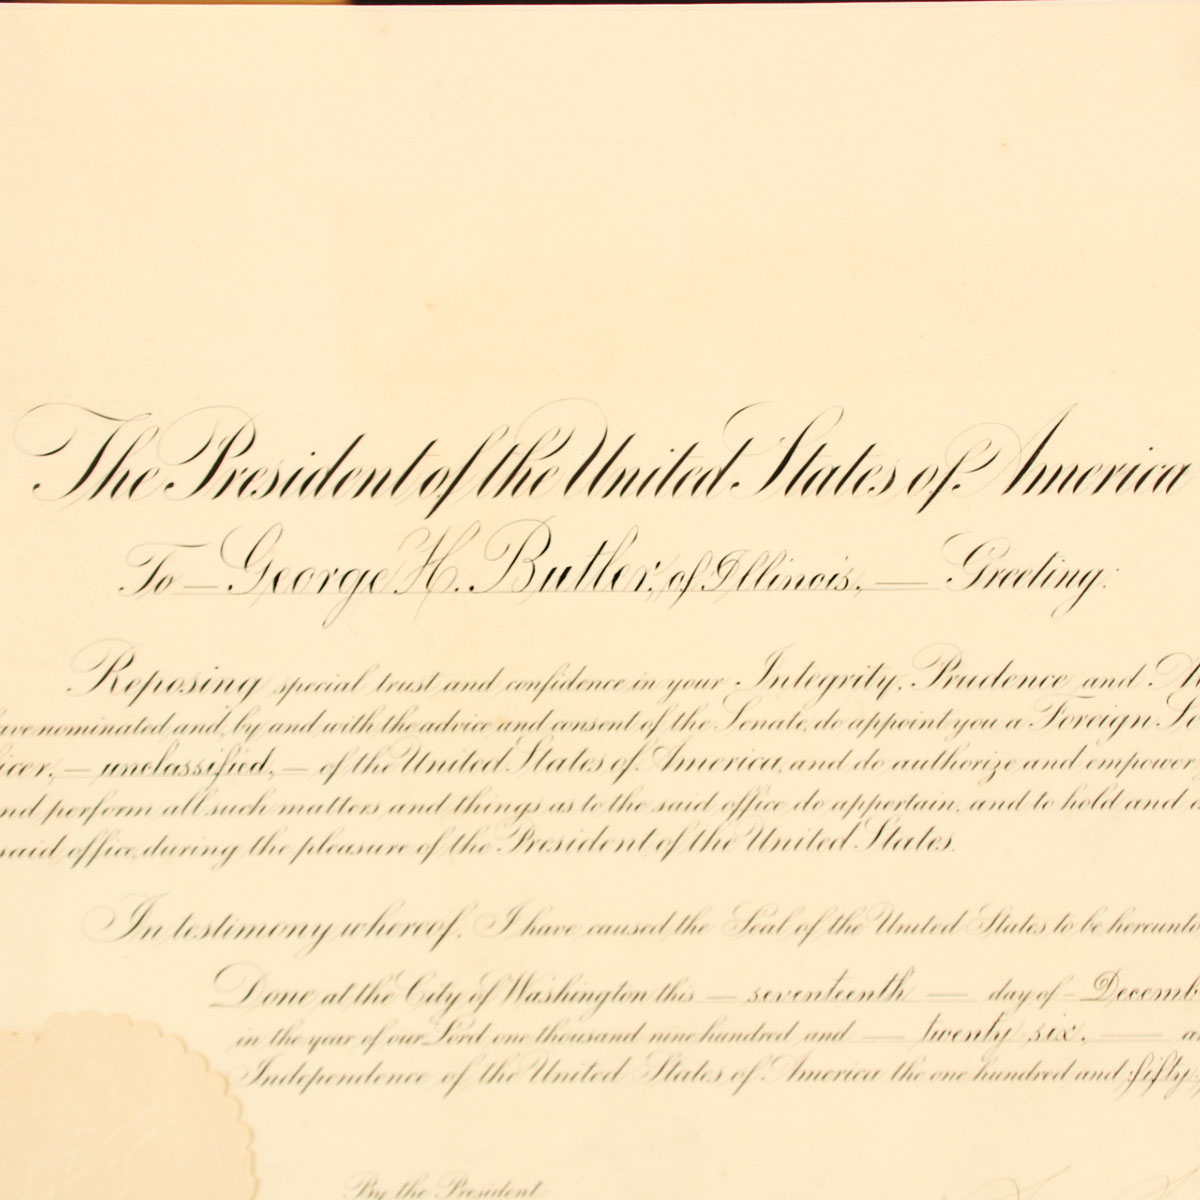 The President of the United States of America
To — George H. Butler, of Illinois, — Greeting:
Reposing special trust and confidence in your Integrity, Prudence and
nominated and, by and with the advice and consent of the Senate, do appoint you a Foreign
— unclassified, — of the United States of America, and do authorize and empower
perform all such matters and things as to the said office do appertain, and to hold and
said office, during the pleasure of the President of the United States.
In testimony whereof, I have caused the Seal of the United States to be hereunto
Done at the City of Washington this — seventeenth — day of - Decemb
in the year of our Lord one thousand nine hundred and — twenty six, —
Independence of the United States of America the one hundred and fifty
By the President: